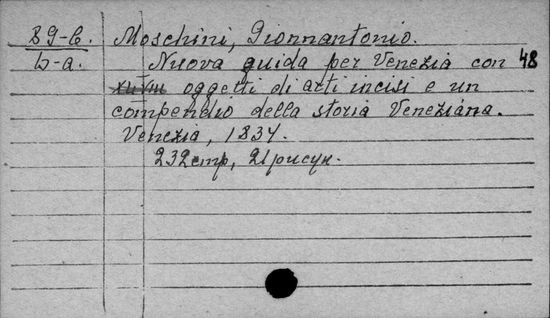 89-б. Moschini, Gionnantonio.
б-a. Nuova guida per Venezia con 48
oggetti di arti incisi e un
compendio della storia Veneziana.
Venezia, 1834.
232стр, 21рисун.